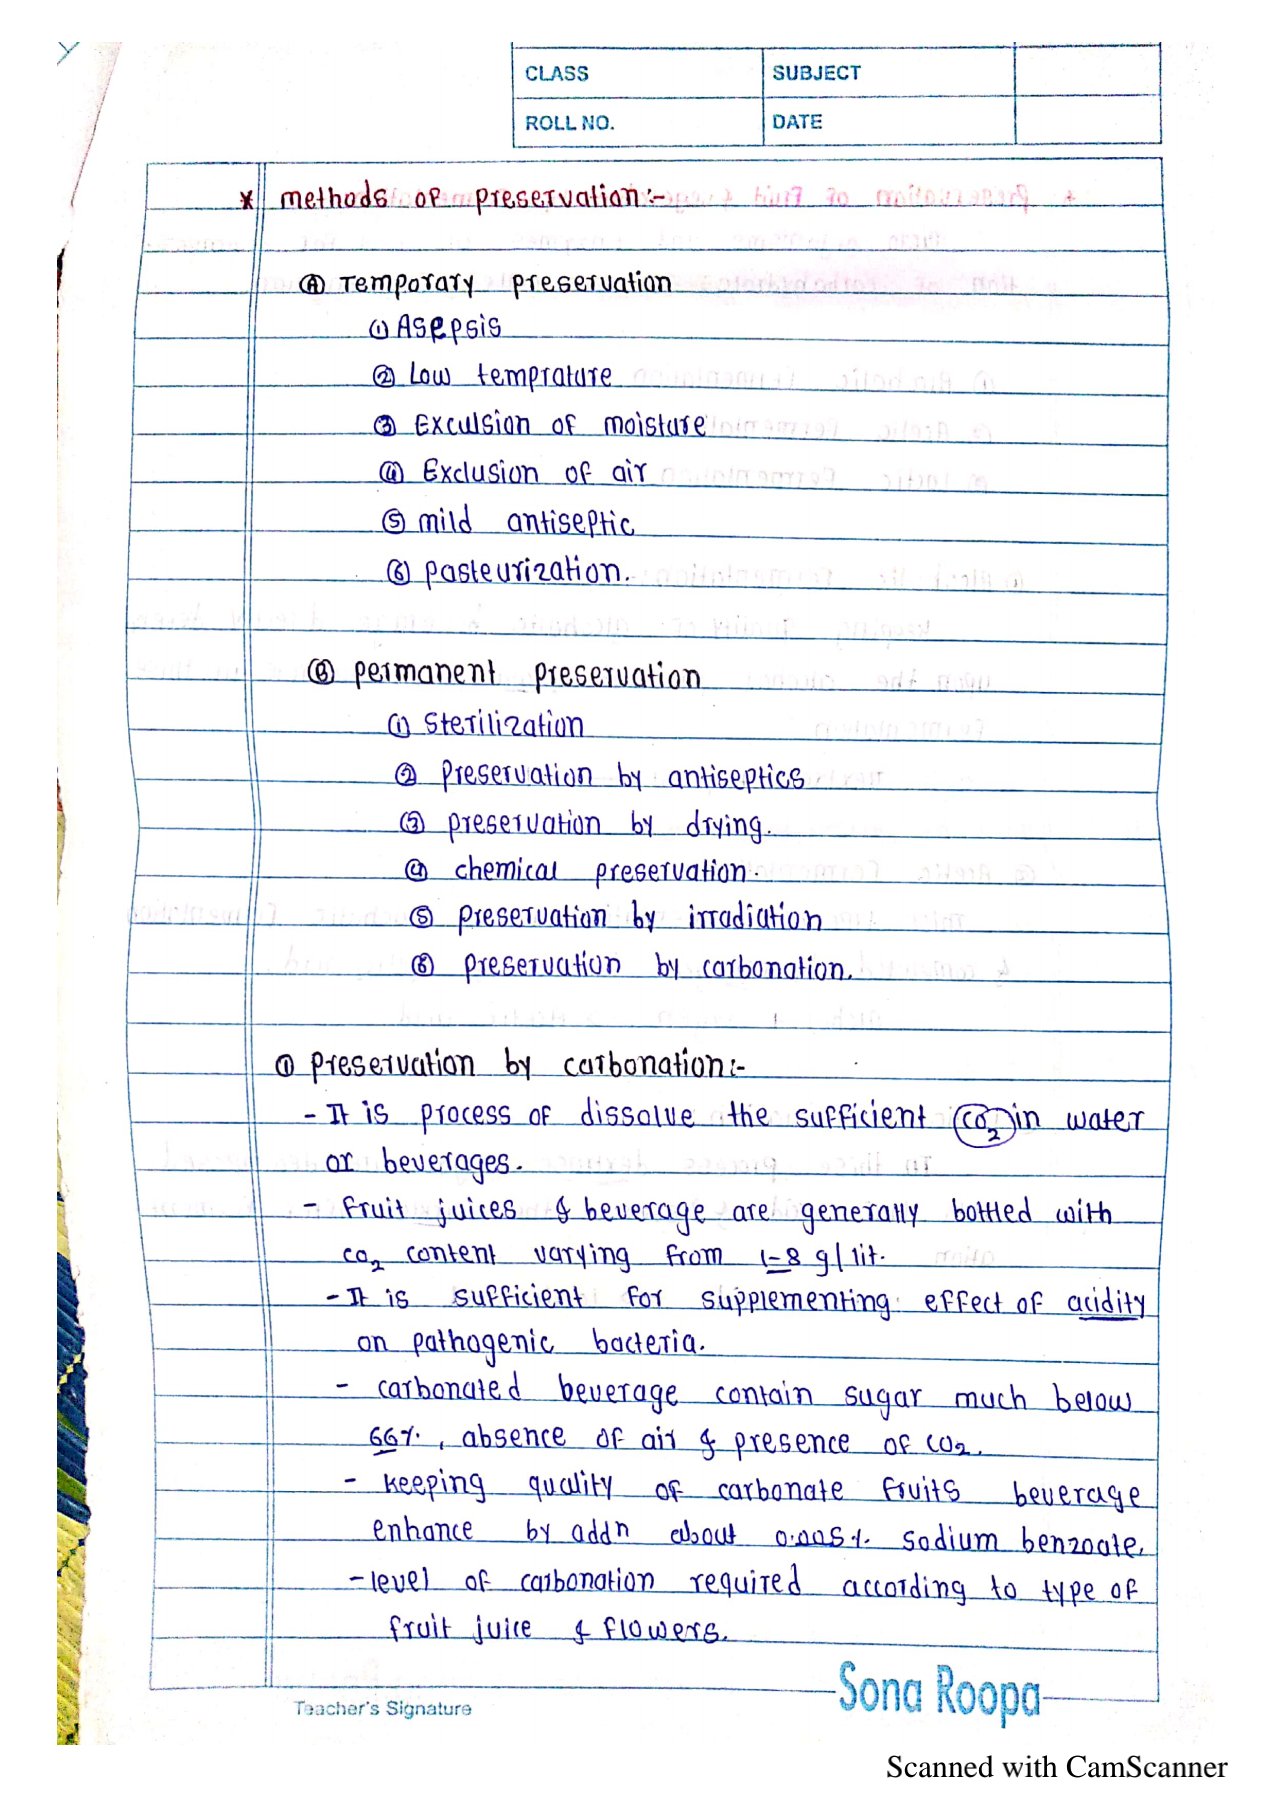 CLASS SUBJECT
ROLL NO. DATE
* methods of preservation:-
Ⓐ Temporary preservation
① Asepsis
② Low temprature
③ Exculsion of moisture
④ Exclusion of air
⑤ mild antiseptic
⑥ pasteurization.
Ⓑ permanent preservation
① Sterilization
② preservation by antiseptics
③ preservation by drying.
④ chemical preservation.
⑤ preservation by irradiation
⑥ preservation by carbonation.
① preservation by carbonation:-
- It is process of dissolve the sufficient CO2 in water
or beverages.
- fruit juices & beverage are generally bottled with
CO2 content varying from 1-8 g/lit.
- It is sufficient for supplementing effect of acidity
on pathogenic bacteria.
- carbonated beverage contain sugar much below
66%, absence of air & presence of CO2.
- keeping quality of carbonate fruits beverage
enhance by addn about 0.005%. sodium benzoate.
- level of carbonation required according to type of
fruit juice & flowers.
Teacher's Signature
Sona Roopa
Scanned with CamScanner